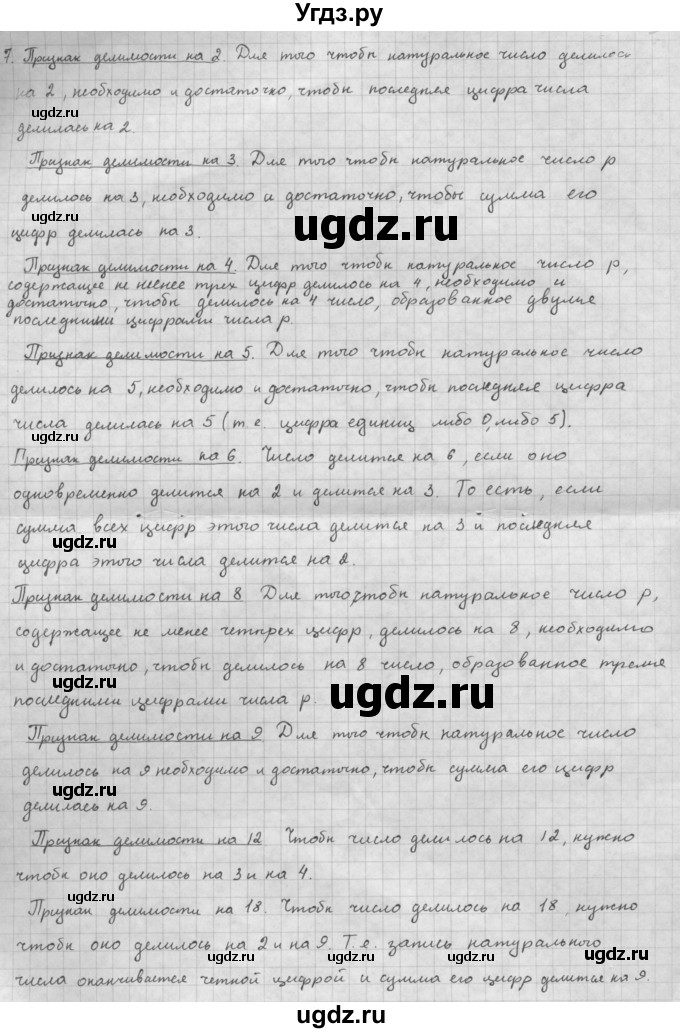 Угдз.ру
7. Признак делимости на 2. Для того чтобы натуральное число делилось
на 2, необходимо и достаточно, чтобы последняя цифра числа
делилась на 2.
Признак делимости на 3. Для того чтобы натуральное число p
делилось на 3, необходимо и достаточно, чтобы сумма его
цифр делилась на 3.
Признак делимости на 4. Для того чтобы натуральное число p,
содержащее не менее трех цифр делилось на 4, необходимо и
достаточно, чтобы делилось на 4 число, образованное двумя
последними цифрами числа p.
Признак делимости на 5. Для того чтобы натуральное число
делилось на 5, необходимо и достаточно, чтобы последняя цифра
числа делилась на 5 (т.е. цифра единиц либо 0, либо 5).
Признак делимости на 6. Число делится на 6, если оно
одновременно делится на 2 и делится на 3. То есть, если
сумма всех цифр этого числа делится на 3 и последняя
цифра этого числа делится на 2.
Признак делимости на 8 Для того, чтобы натуральное число p,
содержащее не менее четырех цифр, делилось на 8, необходимо
и достаточно, чтобы делилось на 8 число, образованное тремя
последними цифрами числа p.
Признак делимости на 9. Для того чтобы натуральное число
делилось на 9 необходимо и достаточно, чтобы сумма его цифр
делилась на 9.
Признак делимости на 12 Чтобы число делилось на 12, нужно
чтобы оно делилось на 3 и на 4.
Признак делимости на 18. Чтобы число делилось на 18, нужно
чтобы оно делилось на 2 и на 9. Т.е. запись натурального
числа оканчивается четной цифрой и сумма его цифр делится на 9.
ugdz.ru
ugdz.ru
ugdz.ru
ugdz.ru
ugdz.ru
ugdz.ru
ugdz.ru
ugdz.ru
ugdz.ru
ugdz.ru
ugdz.ru
ugdz.ru